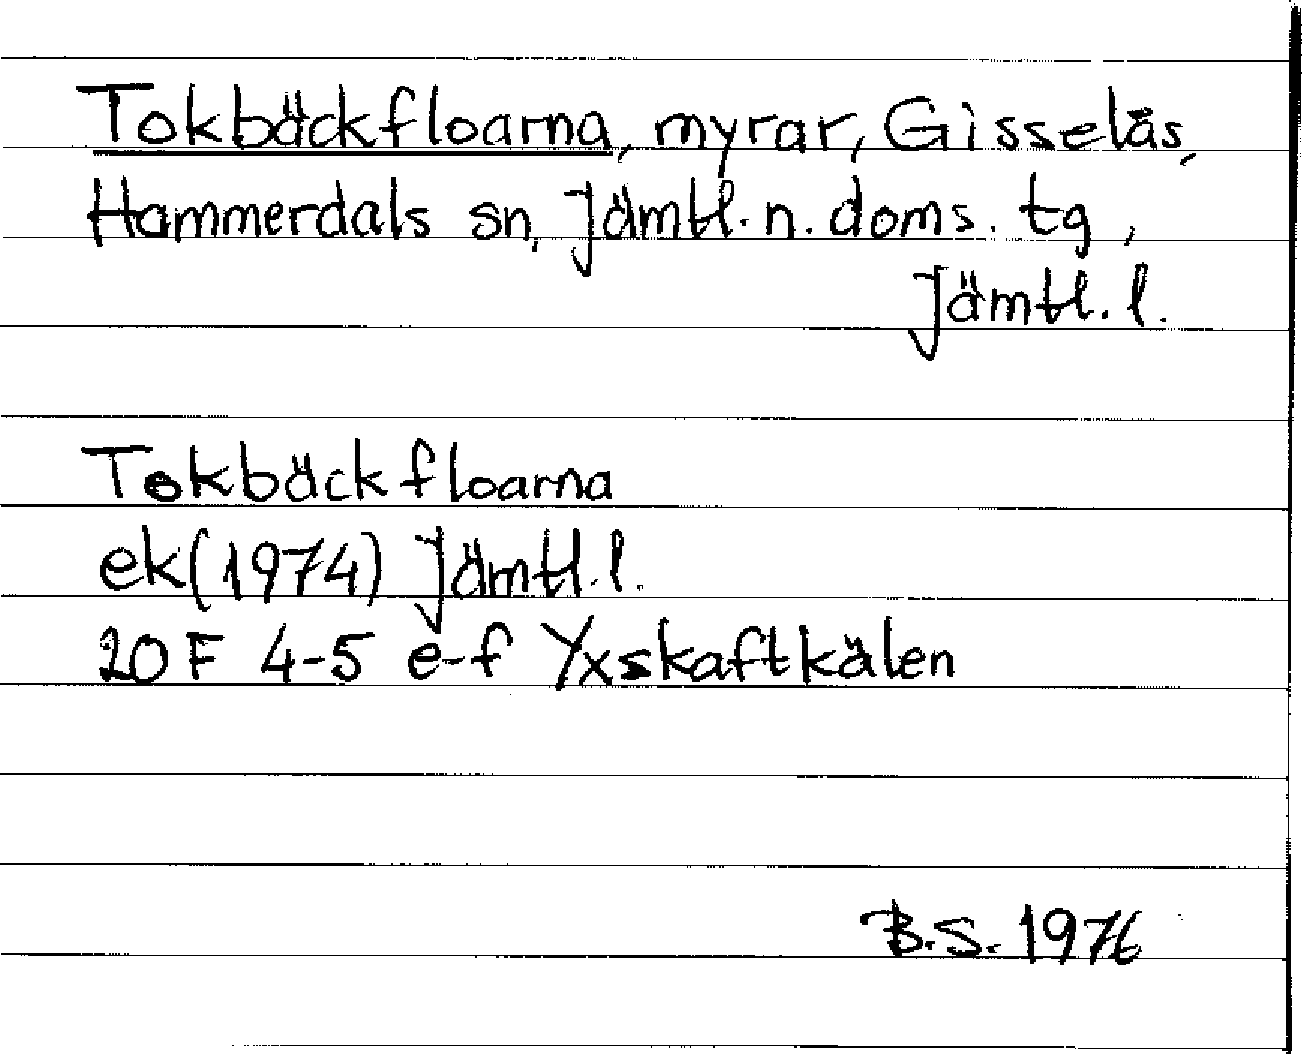 Tokbäckfloarna, myrar, Gisselås,
Hammerdals sn, Jämtl. n. doms. tg,
Jämtl. l.
Tokbäckfloarna
ek (1974) Jämtl. l.
20 F 4-5 e-f Yxskaftkälen
B.S. 1976